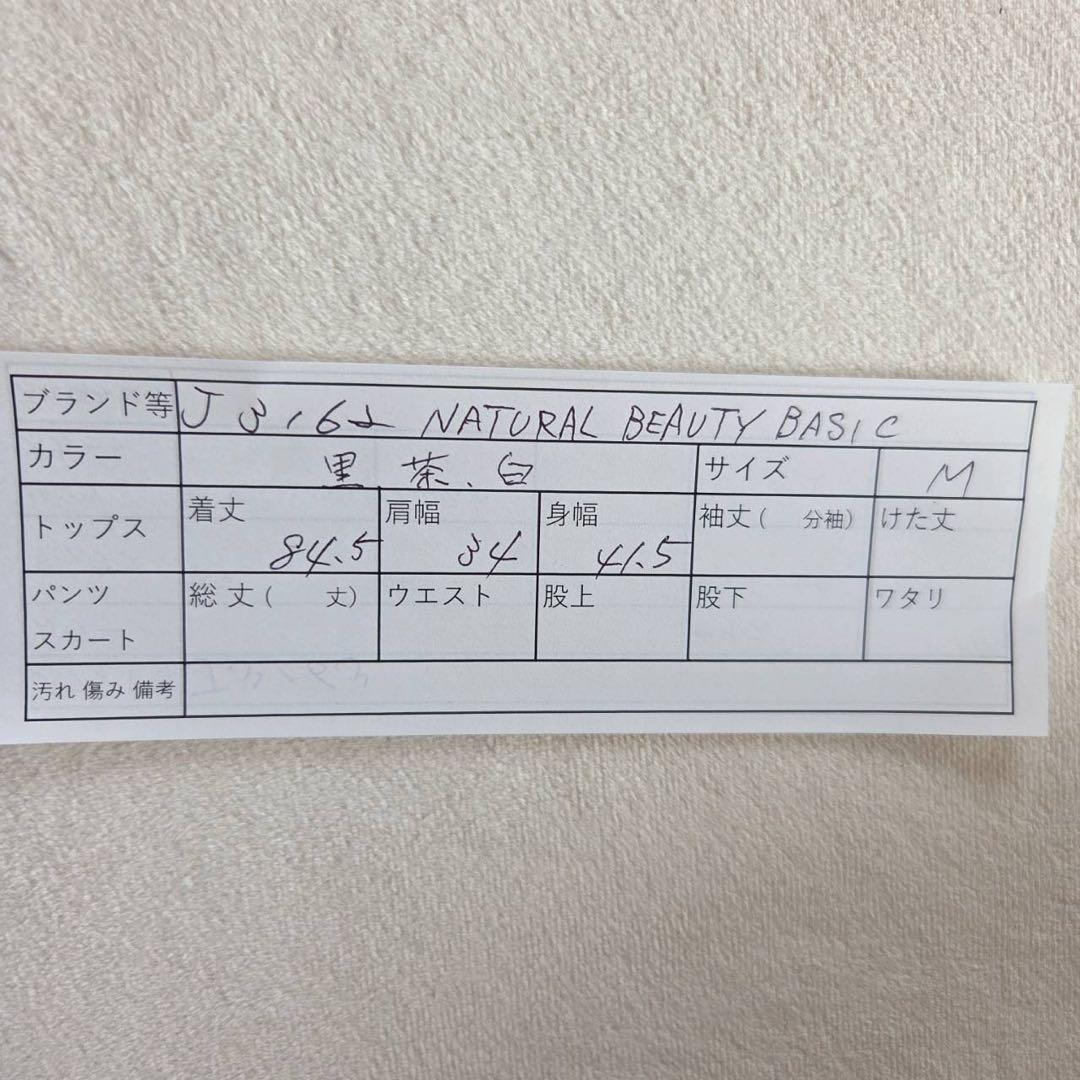 ブランド等 J3162 NATURAL BEAUTY BASIC
カラー 黒 茶、白 サイズ M
トップス 着丈 84.5 肩幅 34 身幅 41.5 袖丈( 分袖) けた丈
パンツ スカート 総丈( 丈) ウエスト 股上 股下 ワタリ
汚れ 傷み 備考